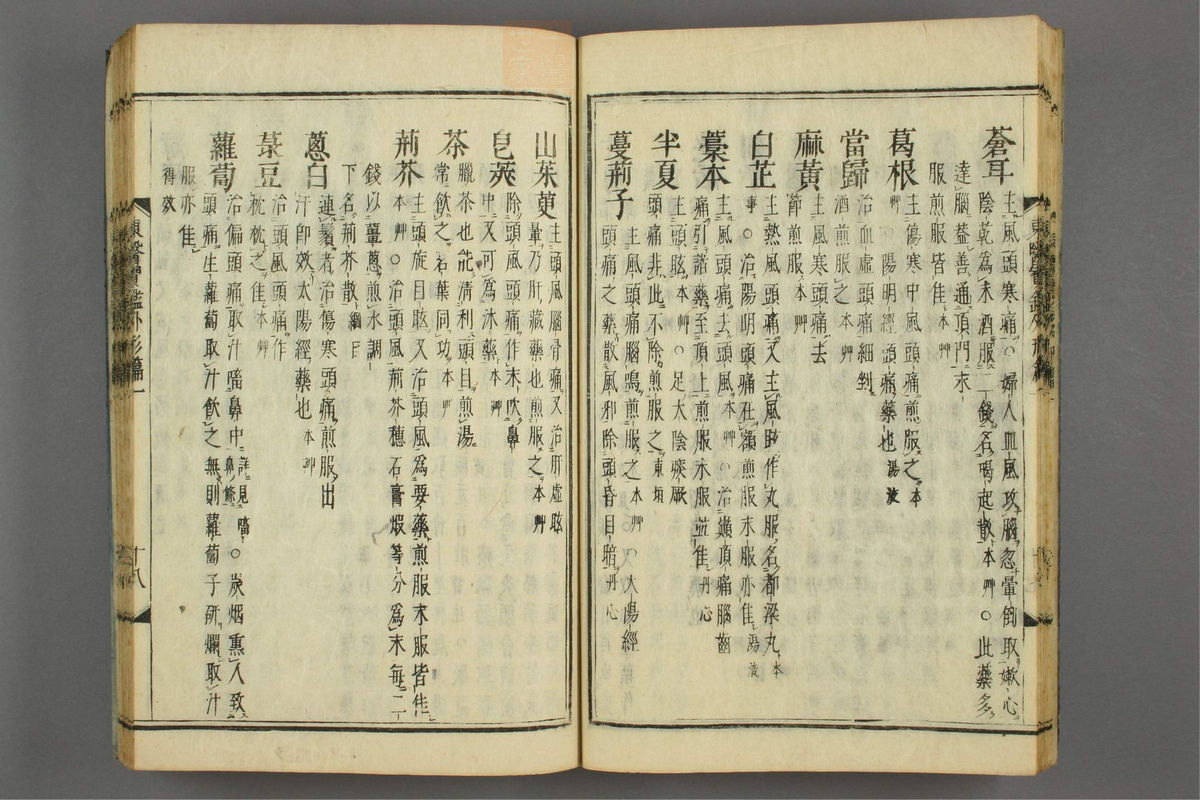 蒼耳
主風頭寒痛○婦人血風攻腦忽暈倒取嫩心
陰乾為末酒服一錢名喝起散本艸○此藥多
達腦盖善通頂門末
服煎服皆佳本艸
葛根
主傷寒中風頭痛煎服之本
艸○陽明經頭痛藥也湯液
當歸
治血虛頭痛細剉
酒煎服之本艸
麻黃
主風寒頭痛去
節煎服本艸
白芷
主熱風頭痛又主風眩作丸服名都梁丸本
事○治陽明頭痛在額煎服末服亦佳湯液
藁本
主風頭痛去頭風本艸○治巔頂痛腦齒
痛引諸藥至頂上煎服末服並佳丹心
半夏
主頭眩本艸○足太陰痰厥
頭痛非此不除煎服之東垣
蔓荊子
主風頭痛腦鳴煎服之本艸○太陽經
頭痛之藥散風邪除頭昏目暗丹心
山茱萸
主頭風腦骨痛又治肝虛眩
暈乃肝藏藥也煎服之本艸
皂莢
除頭風頭痛作末吹鼻
中又可為沐藥本艸
茶
臘茶也能清利頭目煎湯
常飲之茗葉同功本艸
荊芥
主頭旋目眩又治頭風為要藥煎服末服皆佳
本艸○治頭風荊芥穗石膏煆等分為末每二
錢以薑葱煎水調
下名荊芥散綱目
葱白
連鬚者治傷寒頭痛煎服出
汗即效太陽經藥也本艸
菉豆
治頭風頭痛作
枕枕之佳本艸
蘿蔔
治偏頭痛取汁㗜鼻中詳見㗜
鼻條○炭烟熏人致
頭痛生蘿蔔取汁飲之無則蘿蔔子研爛取汁
服亦佳
得效
東醫寶鑑外形篇一
十八